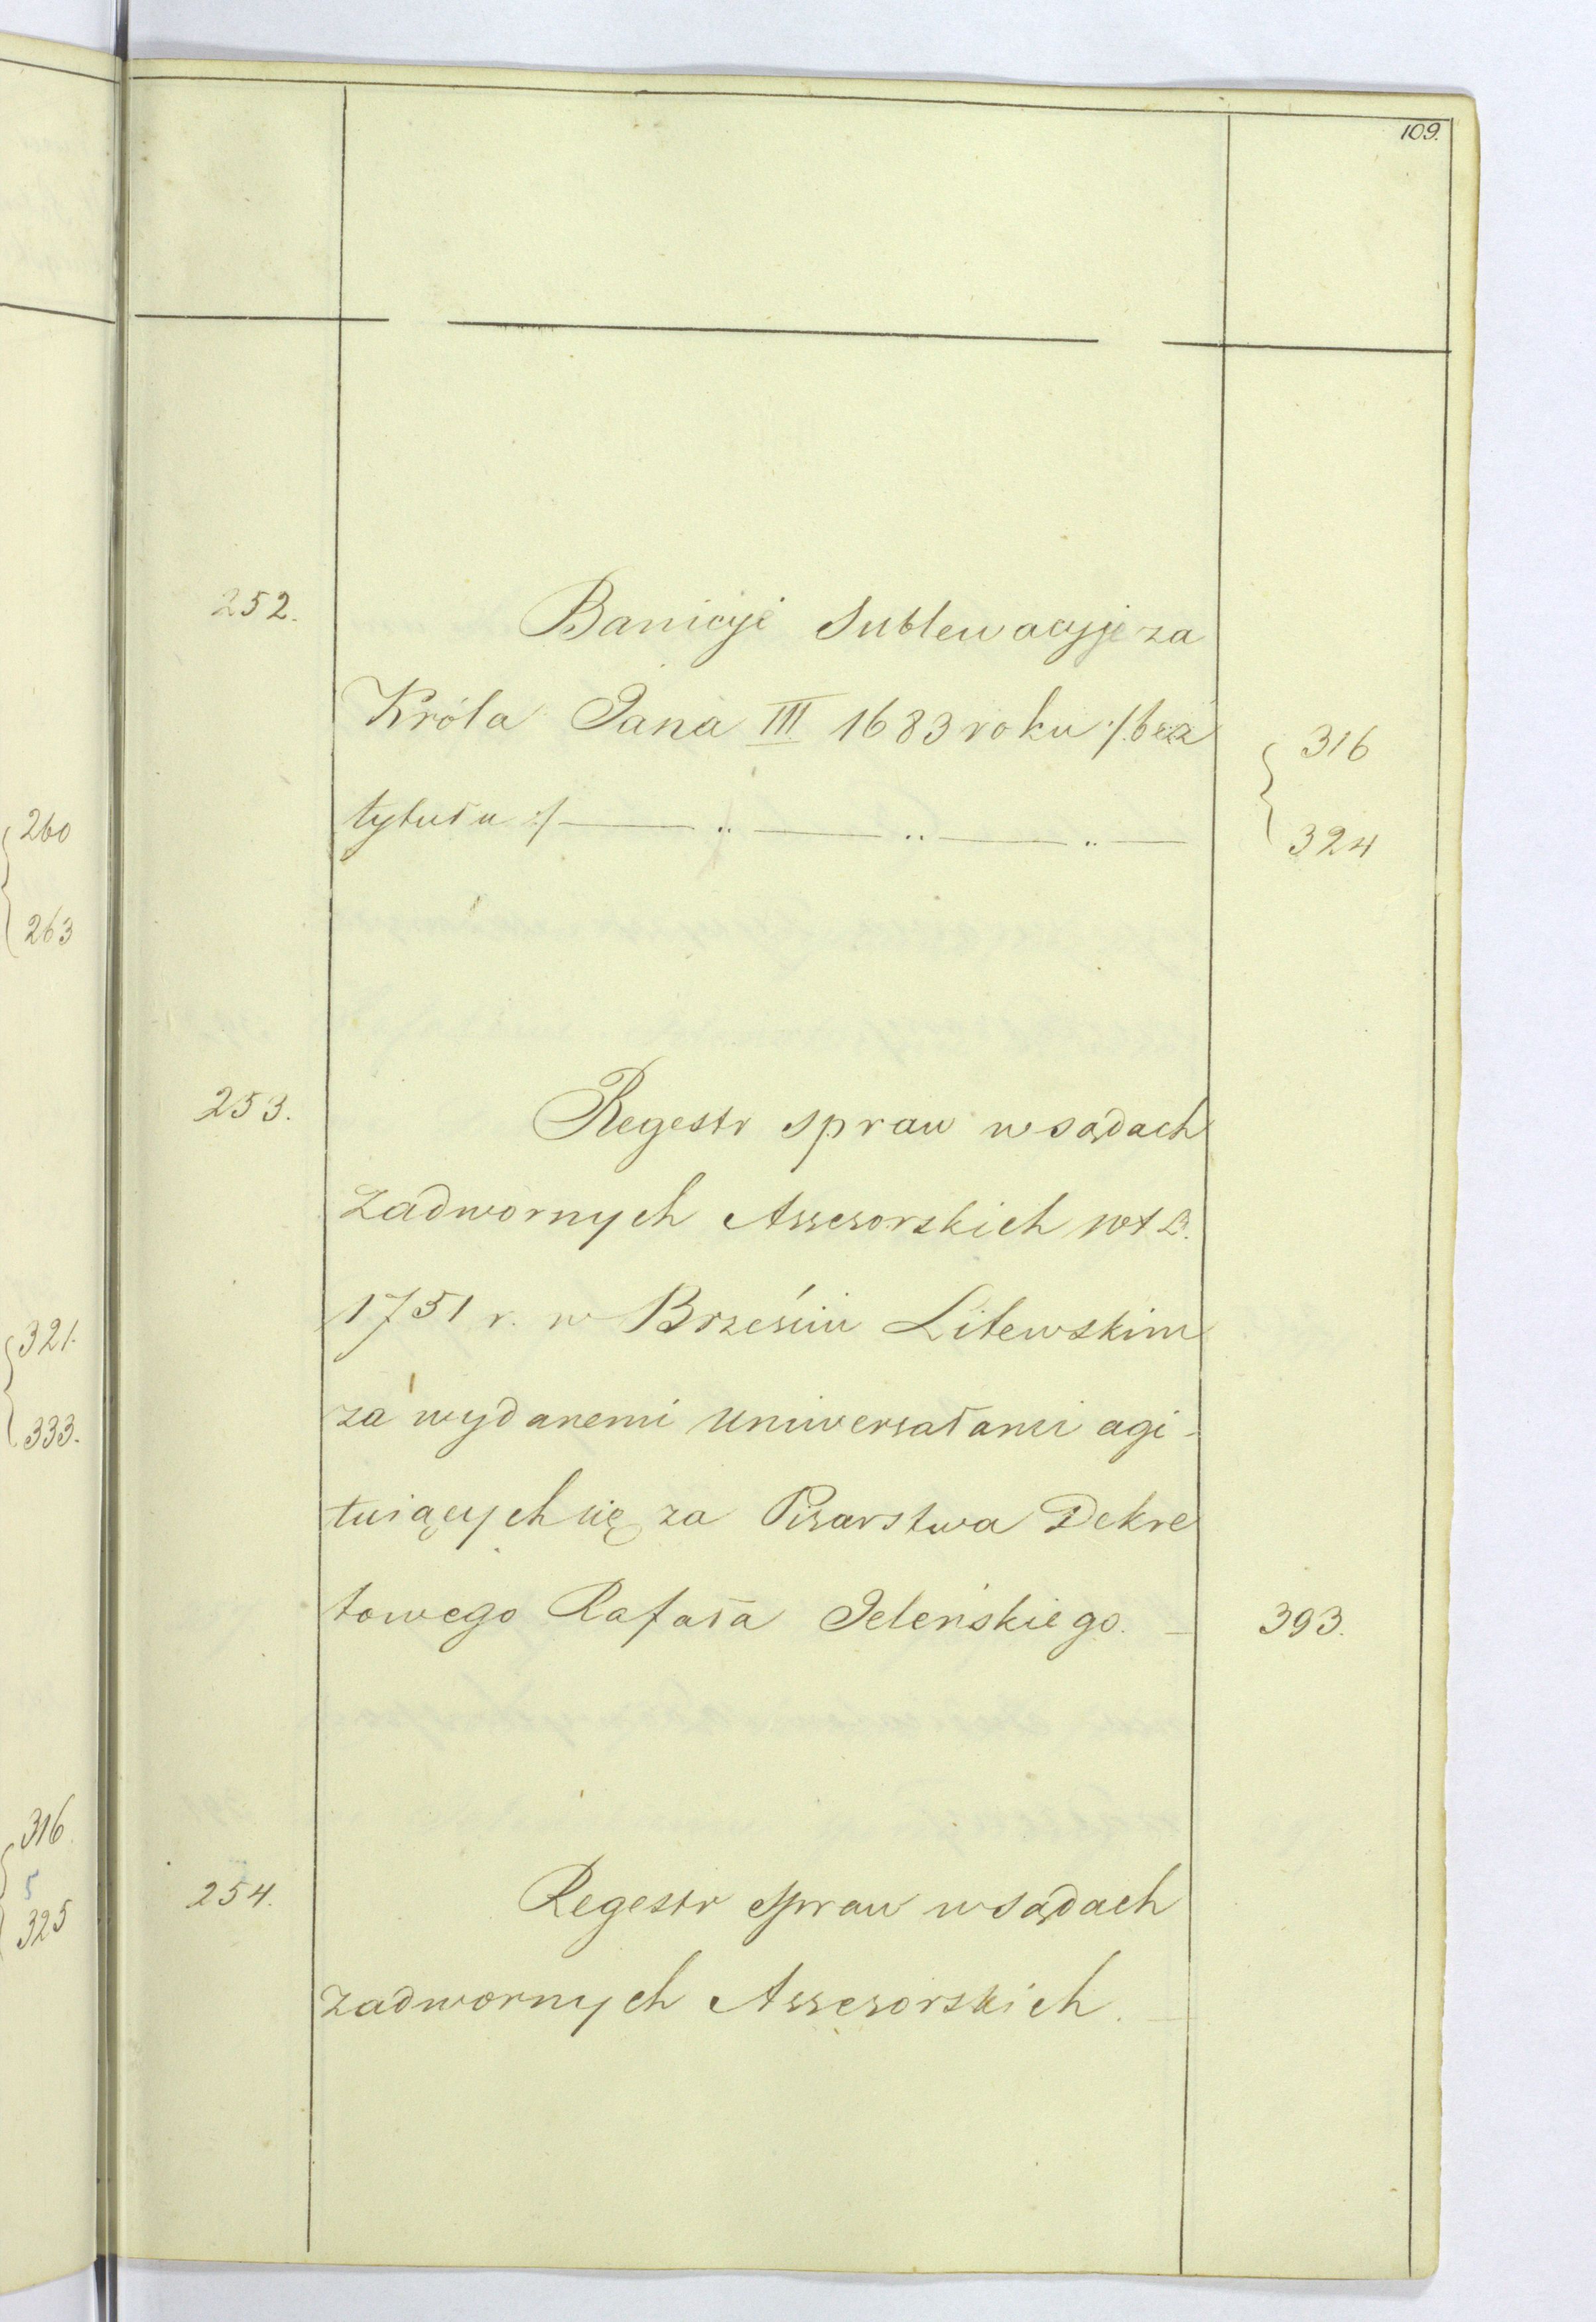 109.
252.
Banicyje Sublewacyje za
Króla Jana III 1683 roku /: bez
tytułu :/ — „ — „ — „ —
316
324
253.
Regestr spraw w sądach
Zadwornych Assesorskich
1751 r. w Brześciu Litewskim
za wydanemi uniwersałami agi-
tuiących się za Pisarstwa Dekre
towego Rafała Jeleńskiego. —
393.
254.
Regestr spraw w sądach
zadwornych Assesorskich. —
260
263
321.
333.
316.
5
325